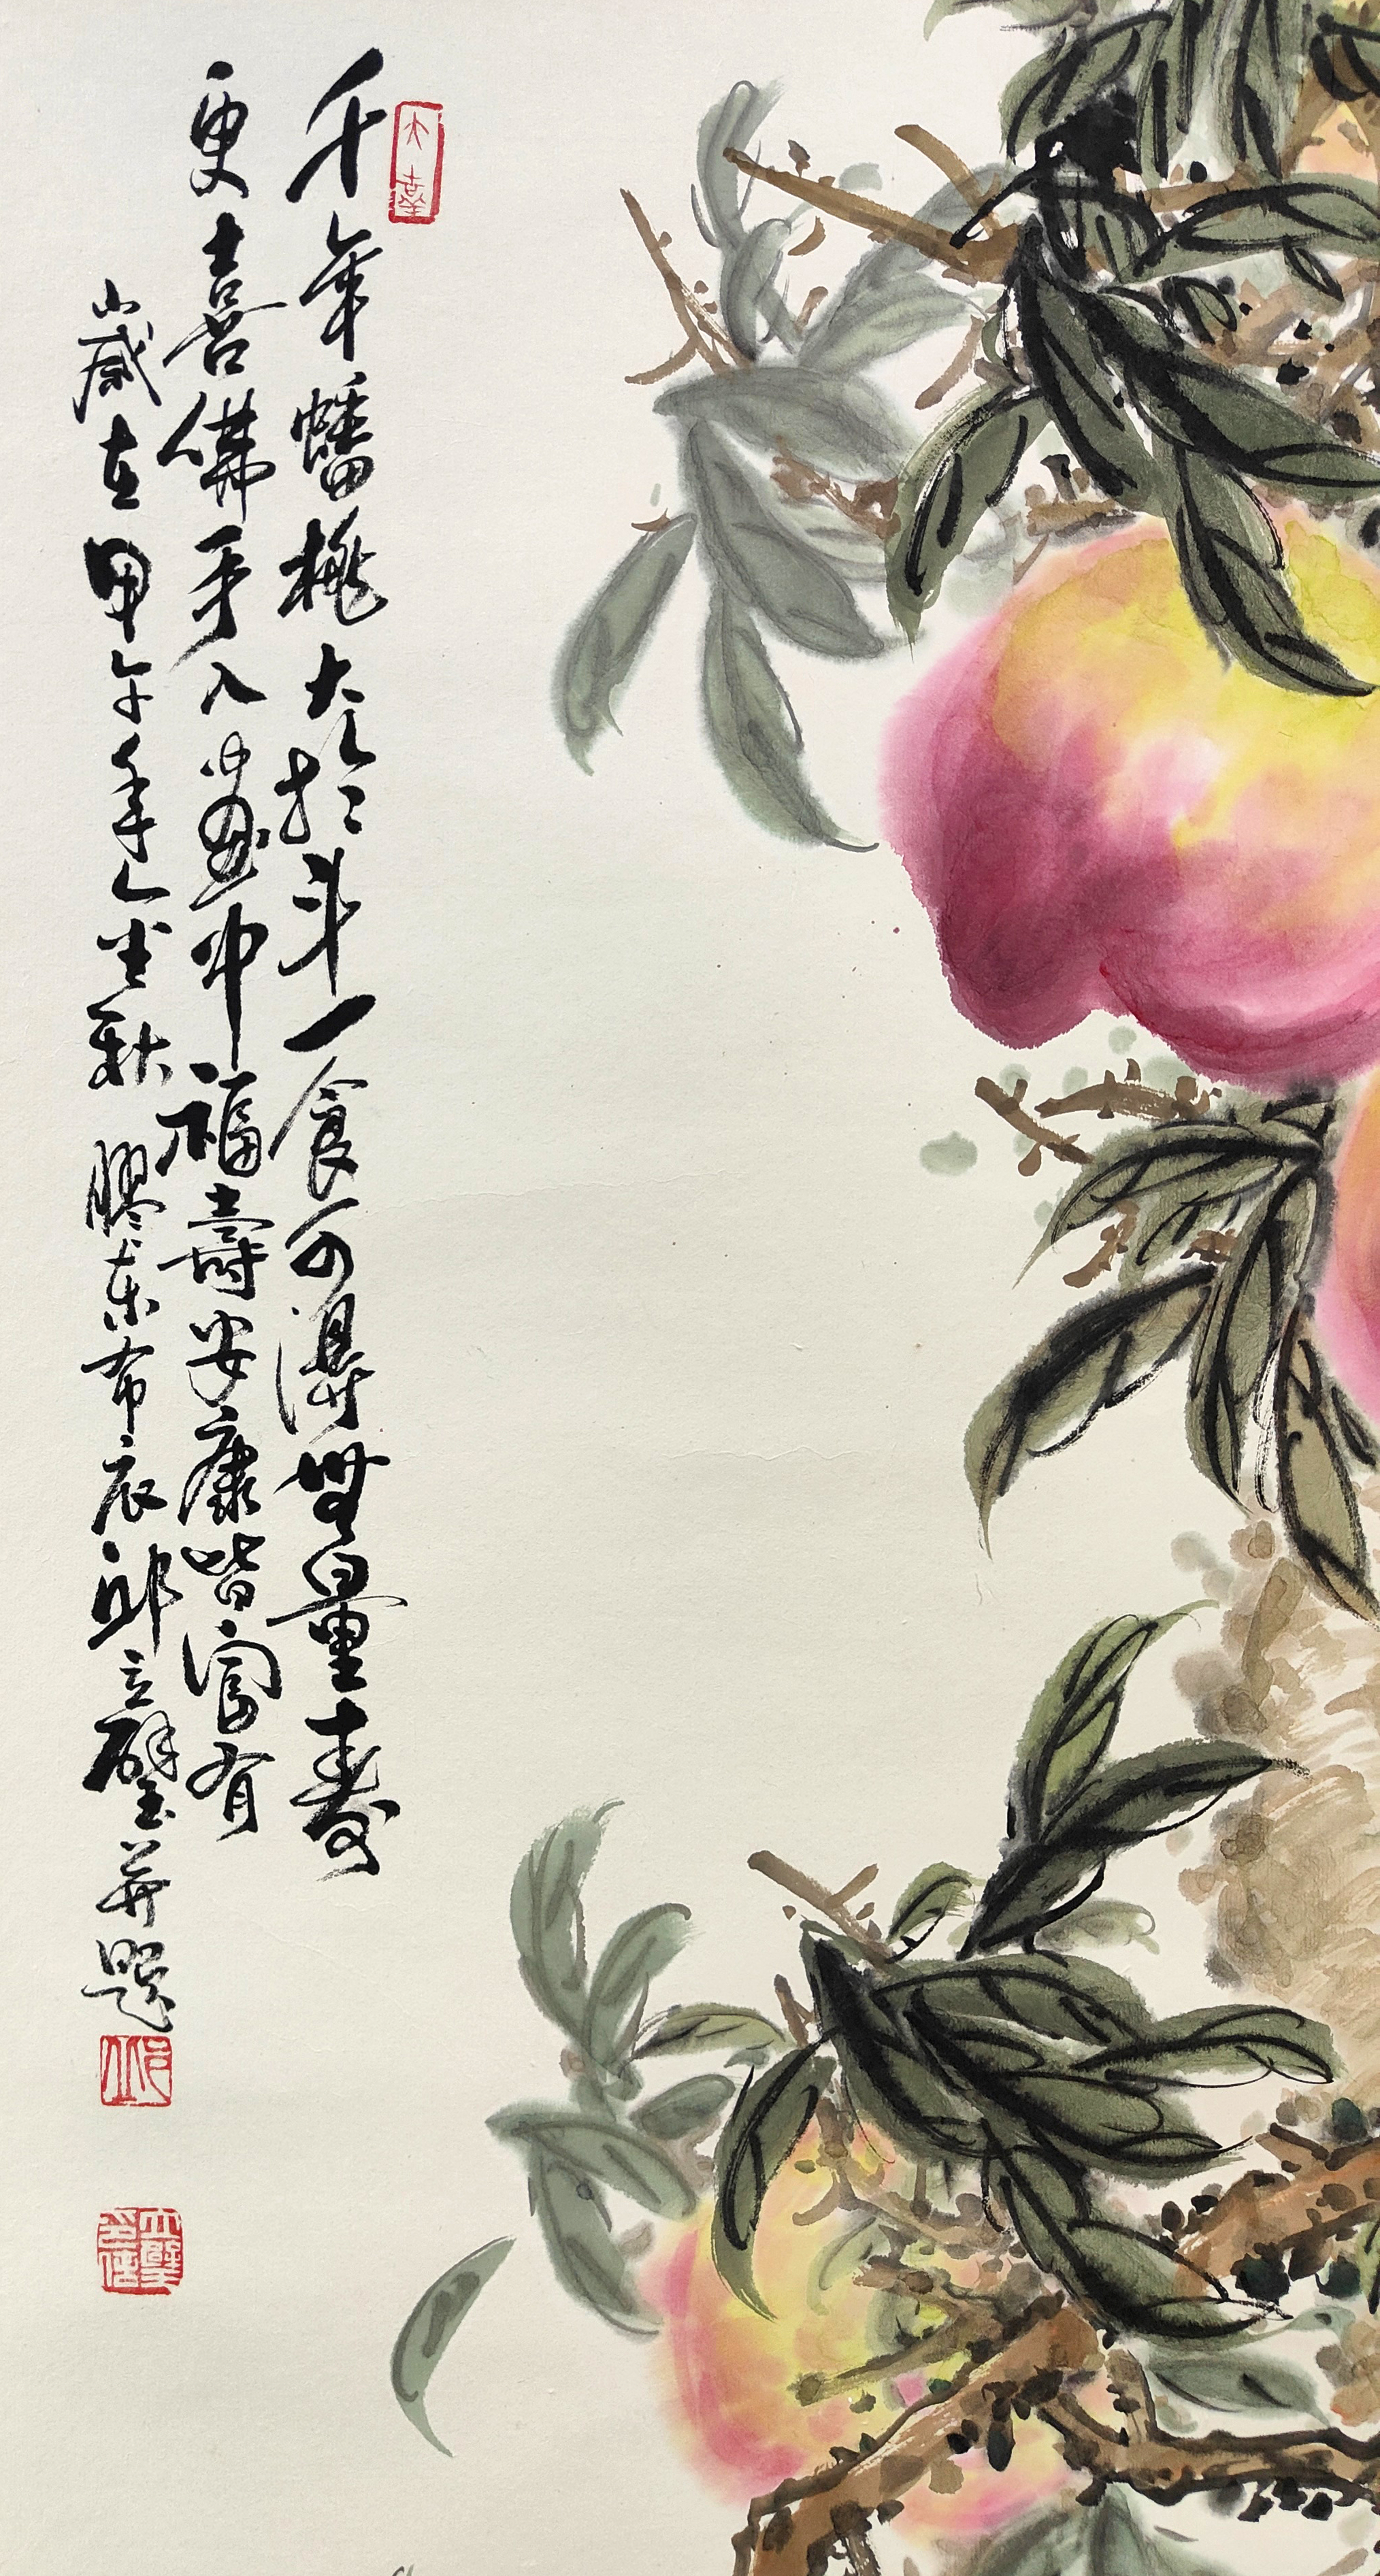 千年蟠桃大於斗一食可得無量壽
更喜佛手入畫中福壽安康皆富有
歲在甲午年之金秋膠東布衣邱立壁并題
大喜